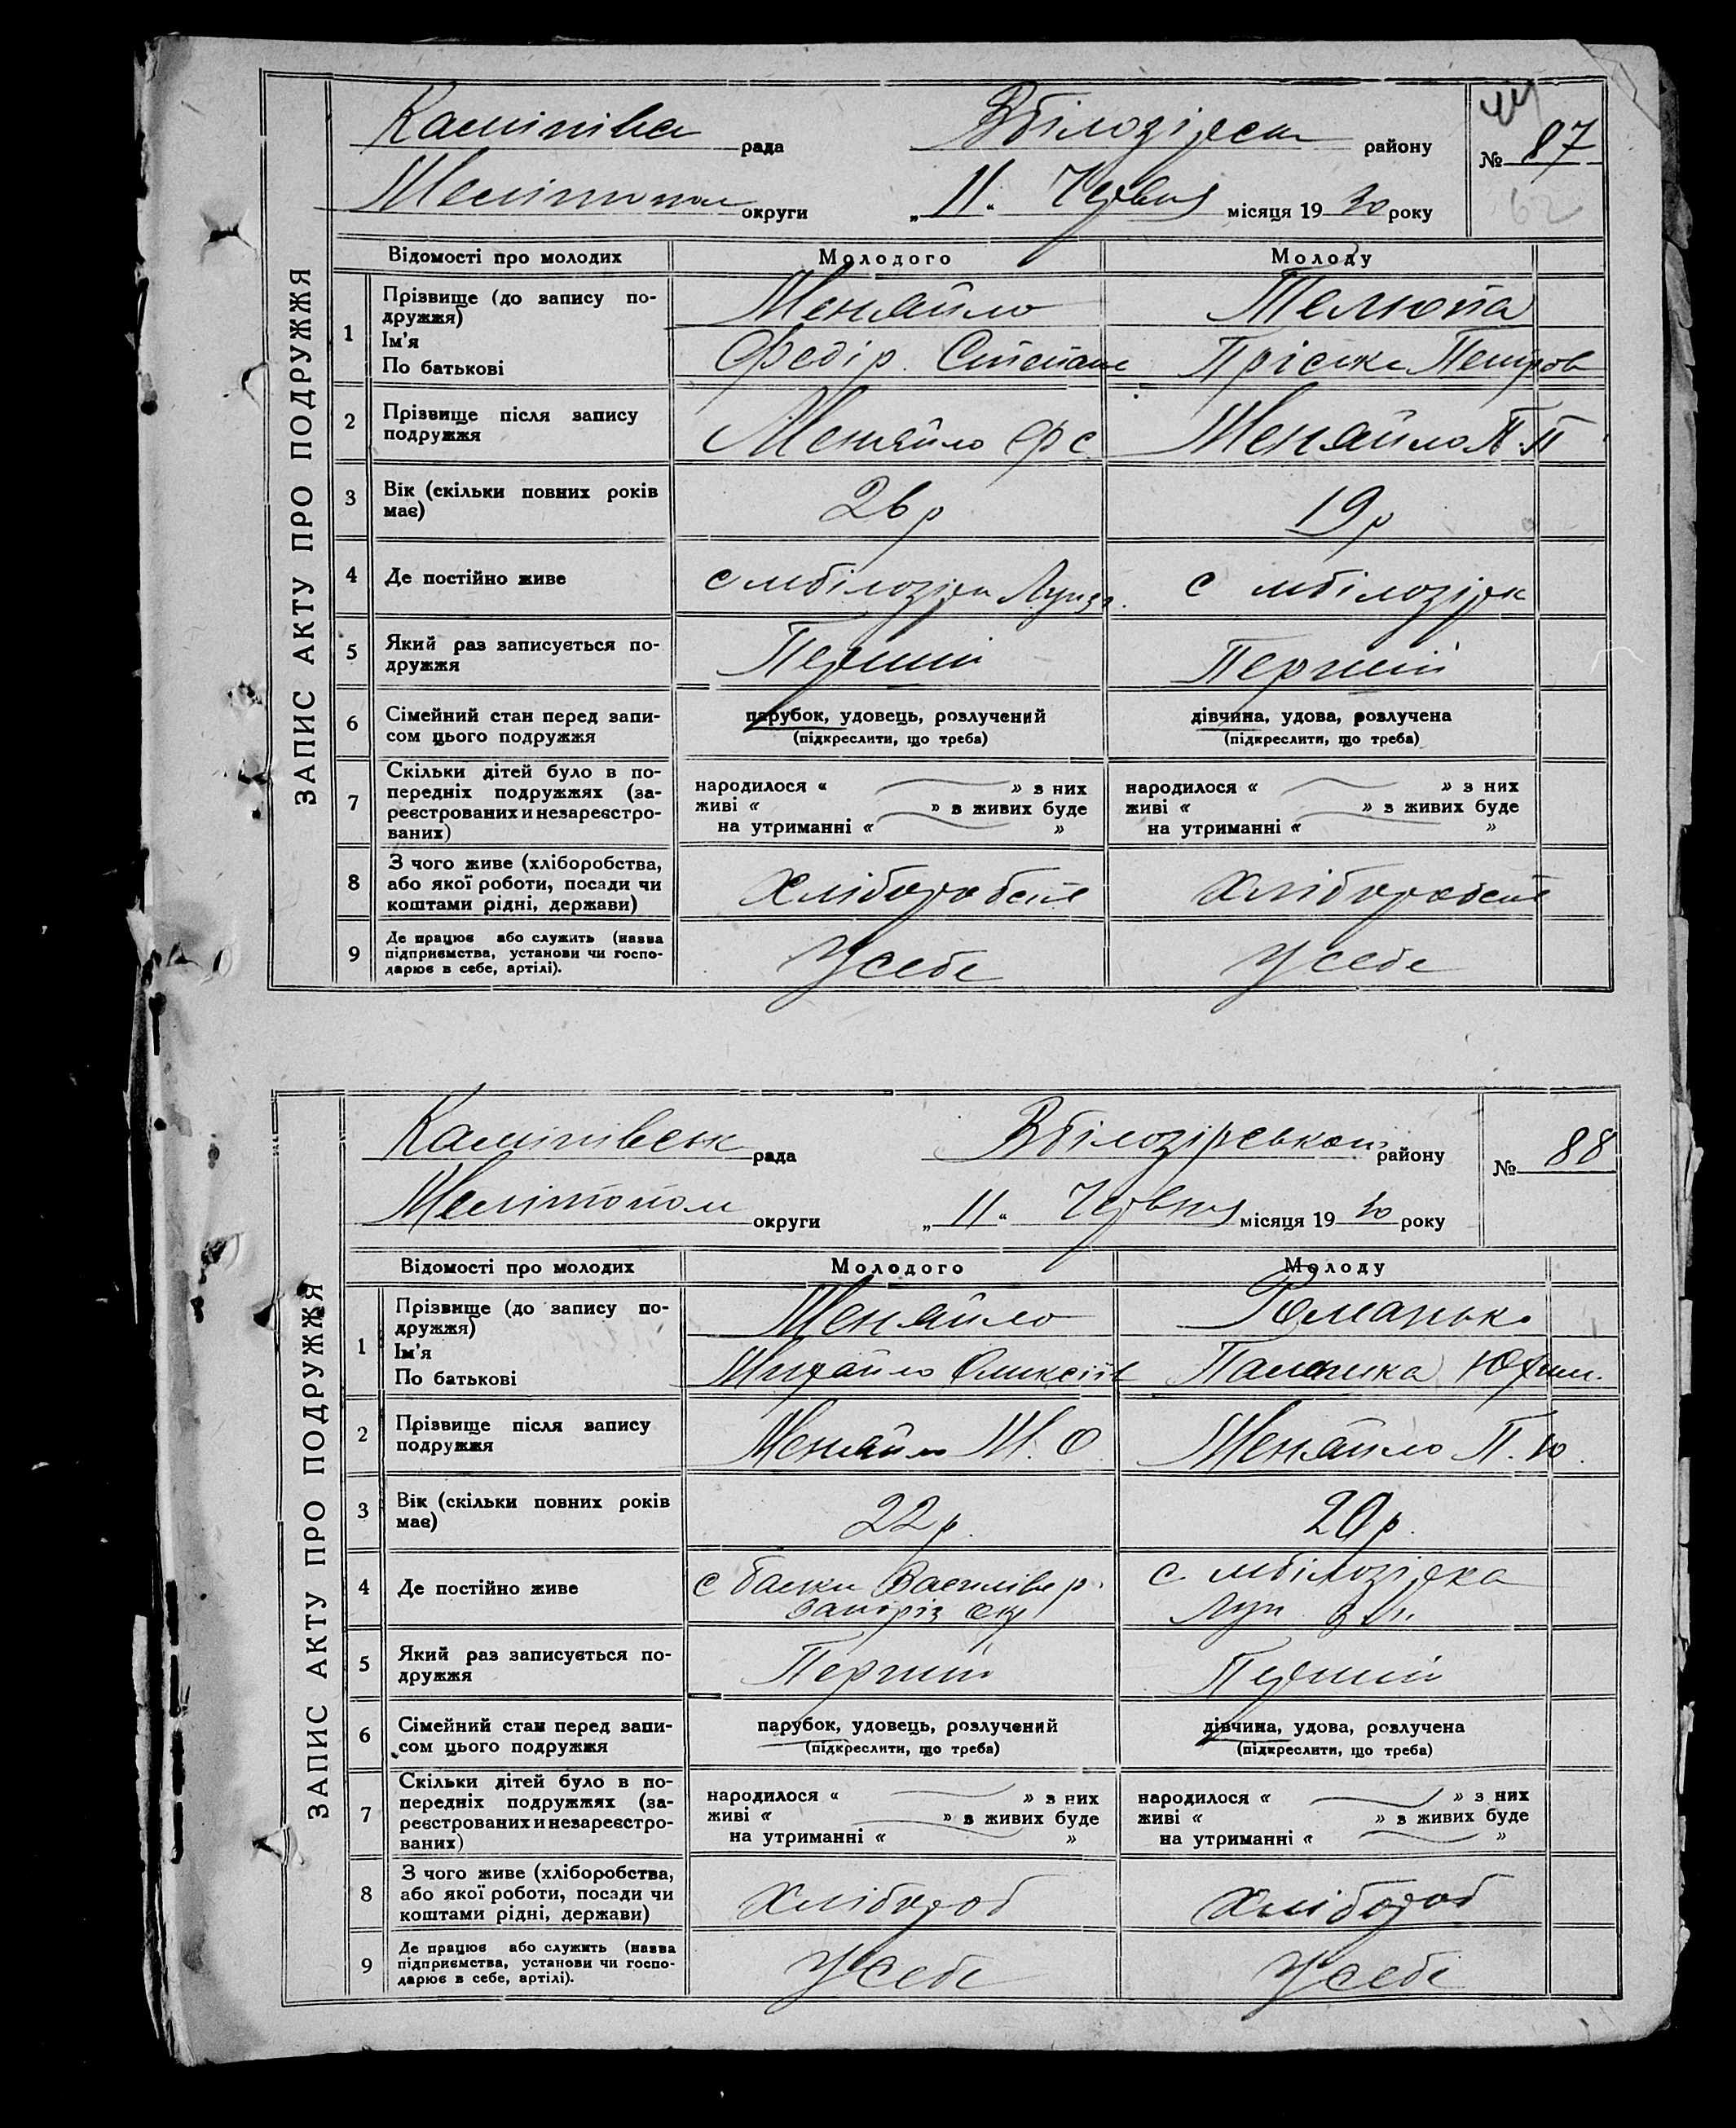 ЗАПИС АКТУ ПРО ПОДРУЖЖЯ
рада Вбілозірськ району № 87
Мелітопол округи „11“ Червня місяця 19 30 року
62
Відомості про молодих Молодого Молоду
1 Прізвище (до запису по-
дружжя) Меняйло
Ім'я
По батькові Федір Степан Пріська Петров
2 Прізвище після запису
подружжя Меняйло Ф С Меняйло П. П
3 Вік (скільки повних років
має) 26 р 19 р
4 Де постійно живе с мбілозірк с мбілозірк
5 Який раз записується по-
дружжя Перший Перший
6 Сімейний стан перед запи-
сом цього подружжя парубок, удовець, розлучений дівчина, удова, розлучена
(підкреслити, що треба) (підкреслити, що треба)
7 Скільки дітей було в по-
передніх подружжях (за-
реєстрованих и незареєстро-
ваних) народилося « » з них народилося « » з них
живі « » в живих буде живі « » з живих буде
на утриманні « » на утриманні « »
8 З чого живе (хліборобства,
або якої роботи, посади чи
коштами рідні, держави) Хліборобств Хліборобств
9 Де працює або служить (назва
підприємства, установи чи госпо-
дарює в себе, артілі). У себе У себе
ЗАПИС АКТУ ПРО ПОДРУЖЖЯ
рада Вбілозірського району № 88
Мелітопол округи „11“ Червня місяця 19 30 року
Відомості про молодих Молодого Молоду
1 Прізвище (до запису по-
дружжя) Меняйло Романько
Ім'я
По батькові Михайло Олексіїв Палажка Юхим.
2 Прізвище після запису
подружжя Меняйло М. О Меняйло П. Ю.
3 Вік (скільки повних років
має) 22 р. 20 р.
4 Де постійно живе с балки Василівс р. с. мбілозірка
Запоріз окр
5 Який раз записується по-
дружжя Перший Перший
6 Сімейний стан перед запи-
сом цього подружжя парубок, удовець, розлучений дівчина, удова, розлучена
(підкреслити, що треба) (підкреслити, що треба)
7 Скільки дітей було в по-
передніх подружжях (за-
реєстрованих и незареєстро-
ваних) народилося « » з них народилося « » з них
живі « » в живих буде живі « » з живих буде
на утриманні « » на утриманні « »
8 З чого живе (хліборобства,
або якої роботи, посади чи
коштами рідні, держави) Хлібороб Хлібороб
9 Де працює або служить (назва
підприємства, установи чи госпо-
дарює в себе, артілі). У себе У себе